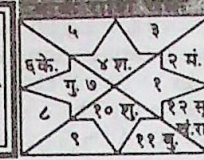 ५ ३
६के. ४ श. २ मं.
गु. ७ १
८ १० शु. १२ सू
९ ११ बु.